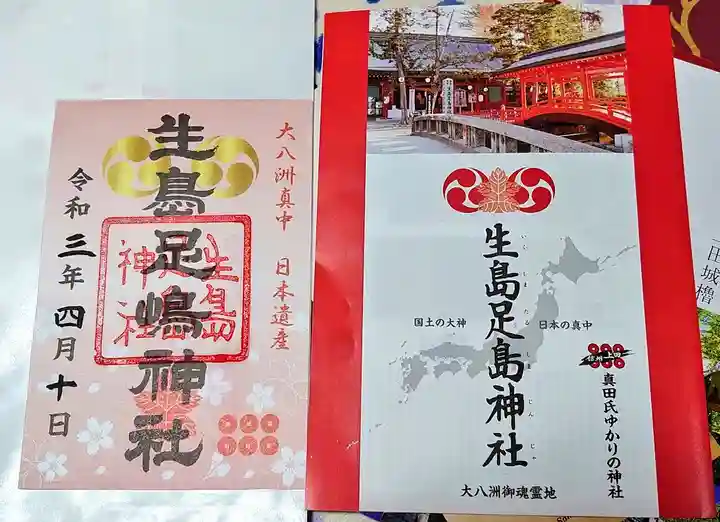 大八洲真中 日本遺産
生島足嶋神社
生島足島神社
令和三年四月十日
国土の大神
日本の真中
生島足島神社
いくしまたるしまじんじゃ
信州上田
真田氏ゆかりの神社
大八洲御魂霊地
田城櫓